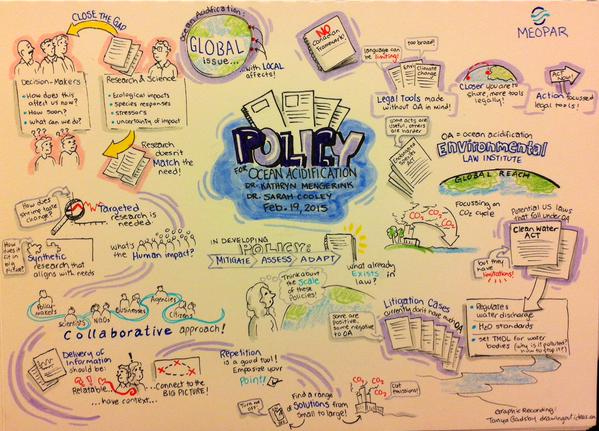 CLOSE THE GAP
Decision-Makers
• How does this
affect us now?
• How soon?
• What can we do?
Research & Science
• Ecological impacts
• Species responses
• stressors
• uncertainty of impact
???
??
Research
doesn't
Match the
need!
Ocean Acidification:
GLOBAL
issue...
with LOCAL
affects!
NO
Canadian
framework!
language can
be limiting!
too broad!
Climate
change
Legal Tools made
without OA in mind!
Closer you are to
shore, more tools
legally!
Act
Now!
Action focussed
legal tools!
MEOPAR
POLICY
FOR
OCEAN ACIDIFICATION
DR. KATHRYN MENGERINK
DR. SARAH COOLEY
Feb. 19, 2015
some acts are
useful, others
are harder
Endangered
Species
Act
OA = ocean acidification
Environmental
LAW INSTITUTE
GLOBAL REACH
How does
shrimp taste
change?
Targeted
research is
needed
How does it
fit in big
Picture?
Synthetic
research that
aligns with needs
What's
the Human impact?
Focussing on
CO2 cycle
CO2
CO2
CO2
Potential US laws
that fall under OA
Clean Water
ACT
but they
have limitations!
IN DEVELOPING
POLICY:
MITIGATE ASSESS ADAPT
Think about
the Scale
of these
Policies!
What already
Exists
in
law?
Some are
positive,
some negative
to OA
Litigation Cases
currently don't have
• Regulate
water discharge
• H2O standards
• set TMDL for water
bodies (Why is it polluted?
How to stop it?)
Policy-
makers
Scientists
NGOs
Businesses
Agencies
Citizens
Collaborative approach!
Delivery of
information
should be:
Relatable...
...have context...
...Connect to the
BIG PICTURE!
Repetition
is a good tool!
Empasize your
Point!!
Turn me
OFF!
Find a range
of Solutions from
small to large!
CO2
CO2
CO2
Cut
emissions!
Graphic Recording:
Tanya Gadsby drawingoutideas.ca